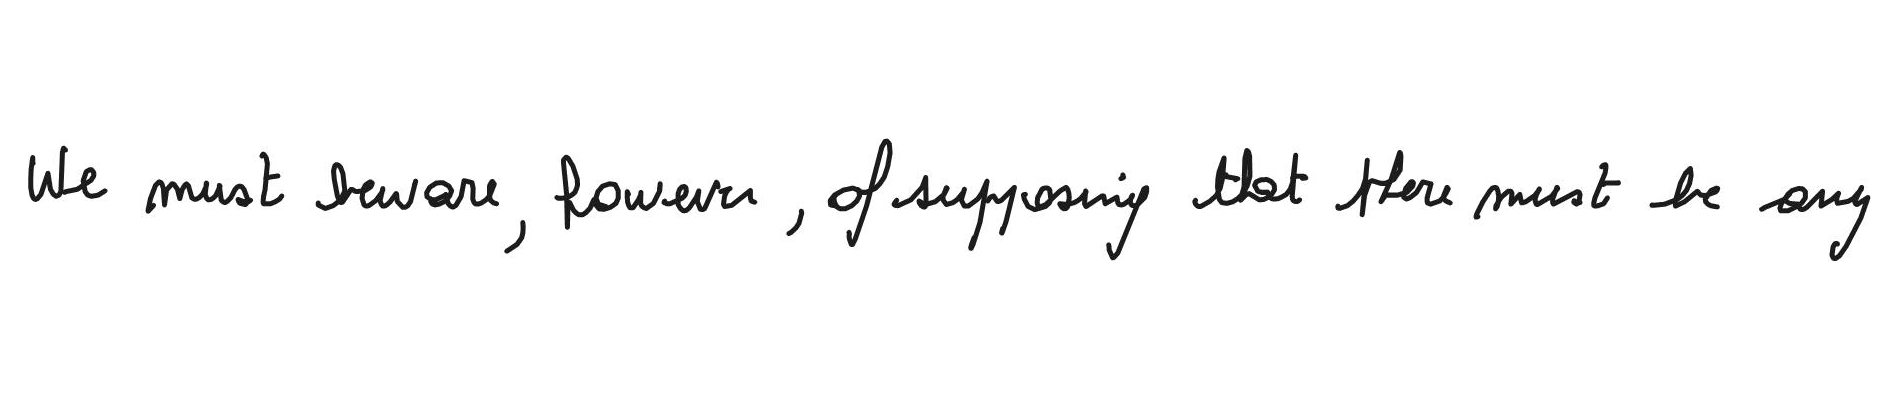 We must beware, however, of supposing that there must be any